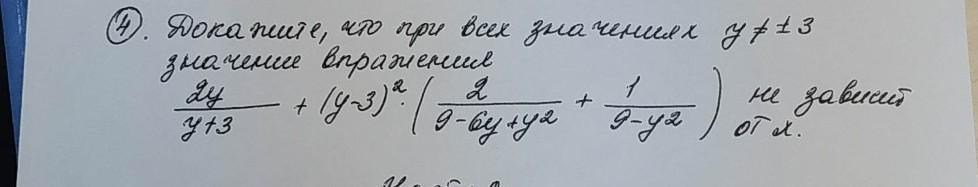 4. Докажите, что при всех значениях y ≠ ± 3
значение впражения
2y/(y+3) + (y-3)²·(2/(9-6y+y²) + 1/(9-y²)) не зависит
от х.